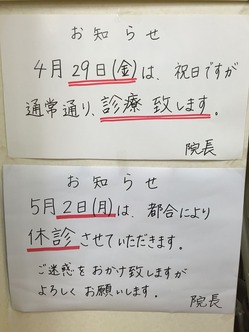 お知らせ
4月29日(金)は、祝日ですが
通常通り、診療致します。
院長
お知らせ
5月2日(月)は、都合により
休診させていただきます。
ご迷惑をおかけ致しますが
よろしくお願いします。
院長